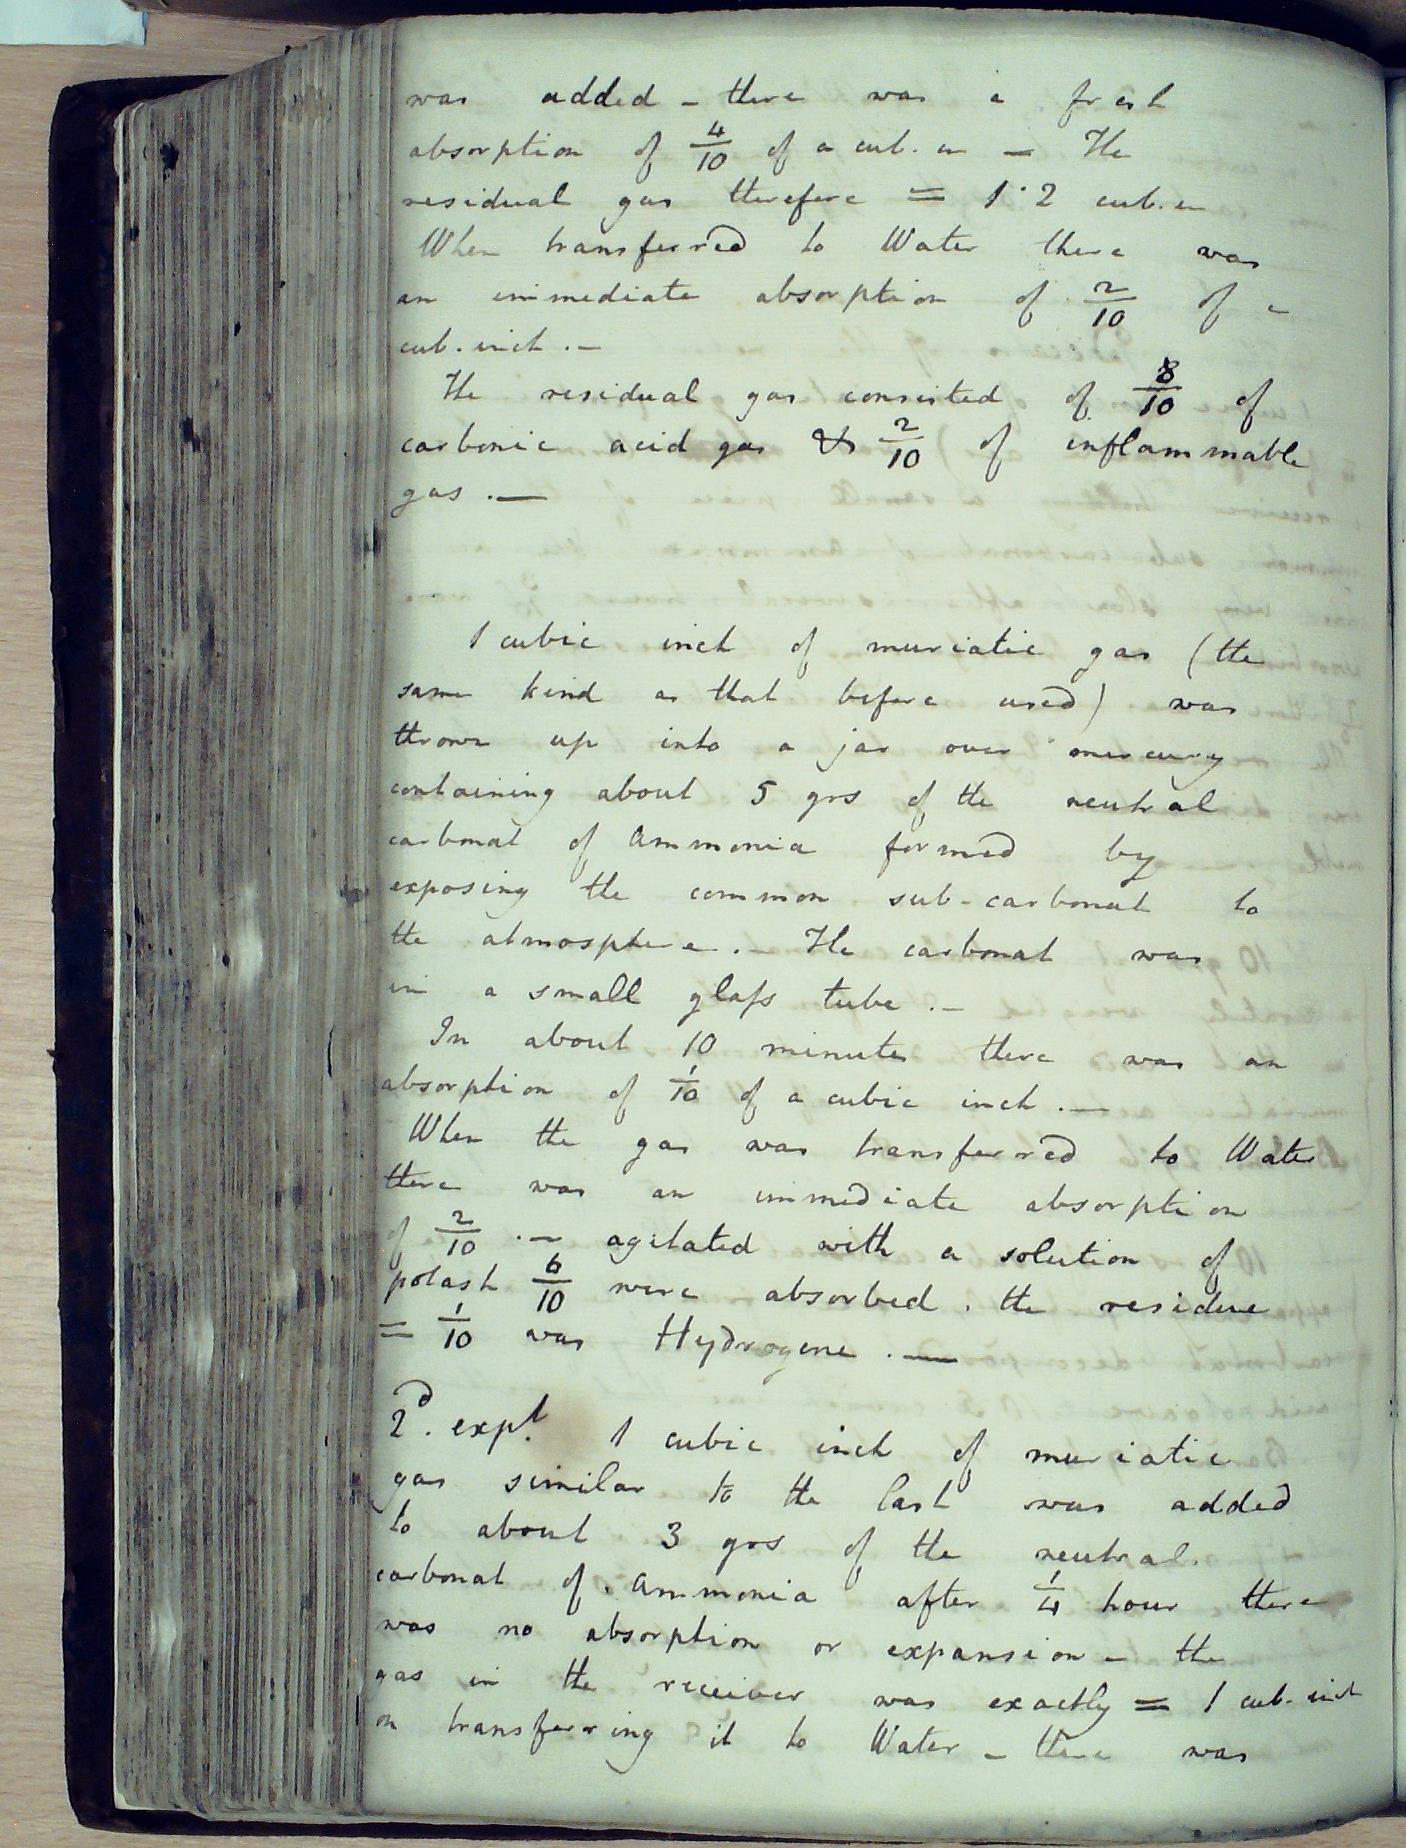 was added - there was a fresh
absorption of 4/10 of a cub. in - The
residual gas therefore = 1·2 cub. in
When transferred to Water there was
an immediate absorption of 2/10 of a
cub. inch. -
The residual gas consisted of 8/10 of
carbonic acid gas & 2/10 of inflammable
gas. -
1 cubic inch of muriatic gas (the
same kind as that before used) was
thrown up into a jar over mercury
containing about 5 grs of the neutral
carbonat of Ammonia formed by
exposing the common sub-carbonat to
the atmosphere. - The carbonat was
in a small glaſs tube. -
In about 10 minutes there was an
absorption of 1/10 of a cubic inch. -
When the gas was transferred to Water
there was an immediate absorption
of 2/10 . - agitated with a solution of
potash 6/10 were absorbed. the residue
= 1/10 was Hydrogene. -
2d. expt. 1 cubic inch of muriatic
gas similar to the last was added
to about 3 grs of the neutral.
carbonat of Ammonia after 1/4 hour there
was no absorption or expansion - the
gas in the receiver was exactly = 1 cub. inch
on transferring it to Water - there was